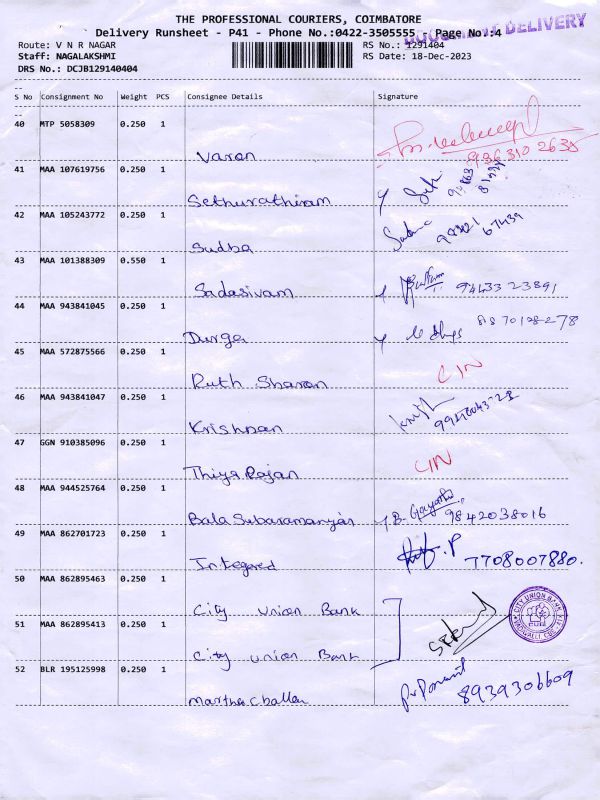 THE PROFESSIONAL COURIERS, COIMBATORE
Delivery Runsheet - P41 - Phone No.:0422-3505555 Page No.:4
DOCUMENT DELIVERY
Route: V N R NAGAR RS No.: 1291404
Staff: NAGALAKSHMI RS Date: 18-Dec-2023
DRS No.: DCJB129140404
S No Consignment No Weight PCS Consignee Details Signature
40 MTP 5058309 0.250 1
Varan 936310 2635
41 MAA 107619756 0.250 1
Sethurathinam
42 MAA 105243772 0.250 1
Sudha
43 MAA 101388309 0.550 1
Sadasivam 94433 23891
44 MAA 943841045 0.250 1
Durga
45 MAA 572875566 0.250 1
Ruth Sharon CIN
46 MAA 943841047 0.250 1
Krishnan
47 GGN 910385096 0.250 1
Thiya Rajan CIN
48 MAA 944525764 0.250 1
Bala Subaramanyan B. Gayathri 9842038016
49 MAA 862701723 0.250 1
Integered 7708007880.
50 MAA 862895463 0.250 1
City Union Bank
51 MAA 862895413 0.250 1
City Union Bank
CITY UNION BANK
52 BLR 195125998 0.250 1
8939306609